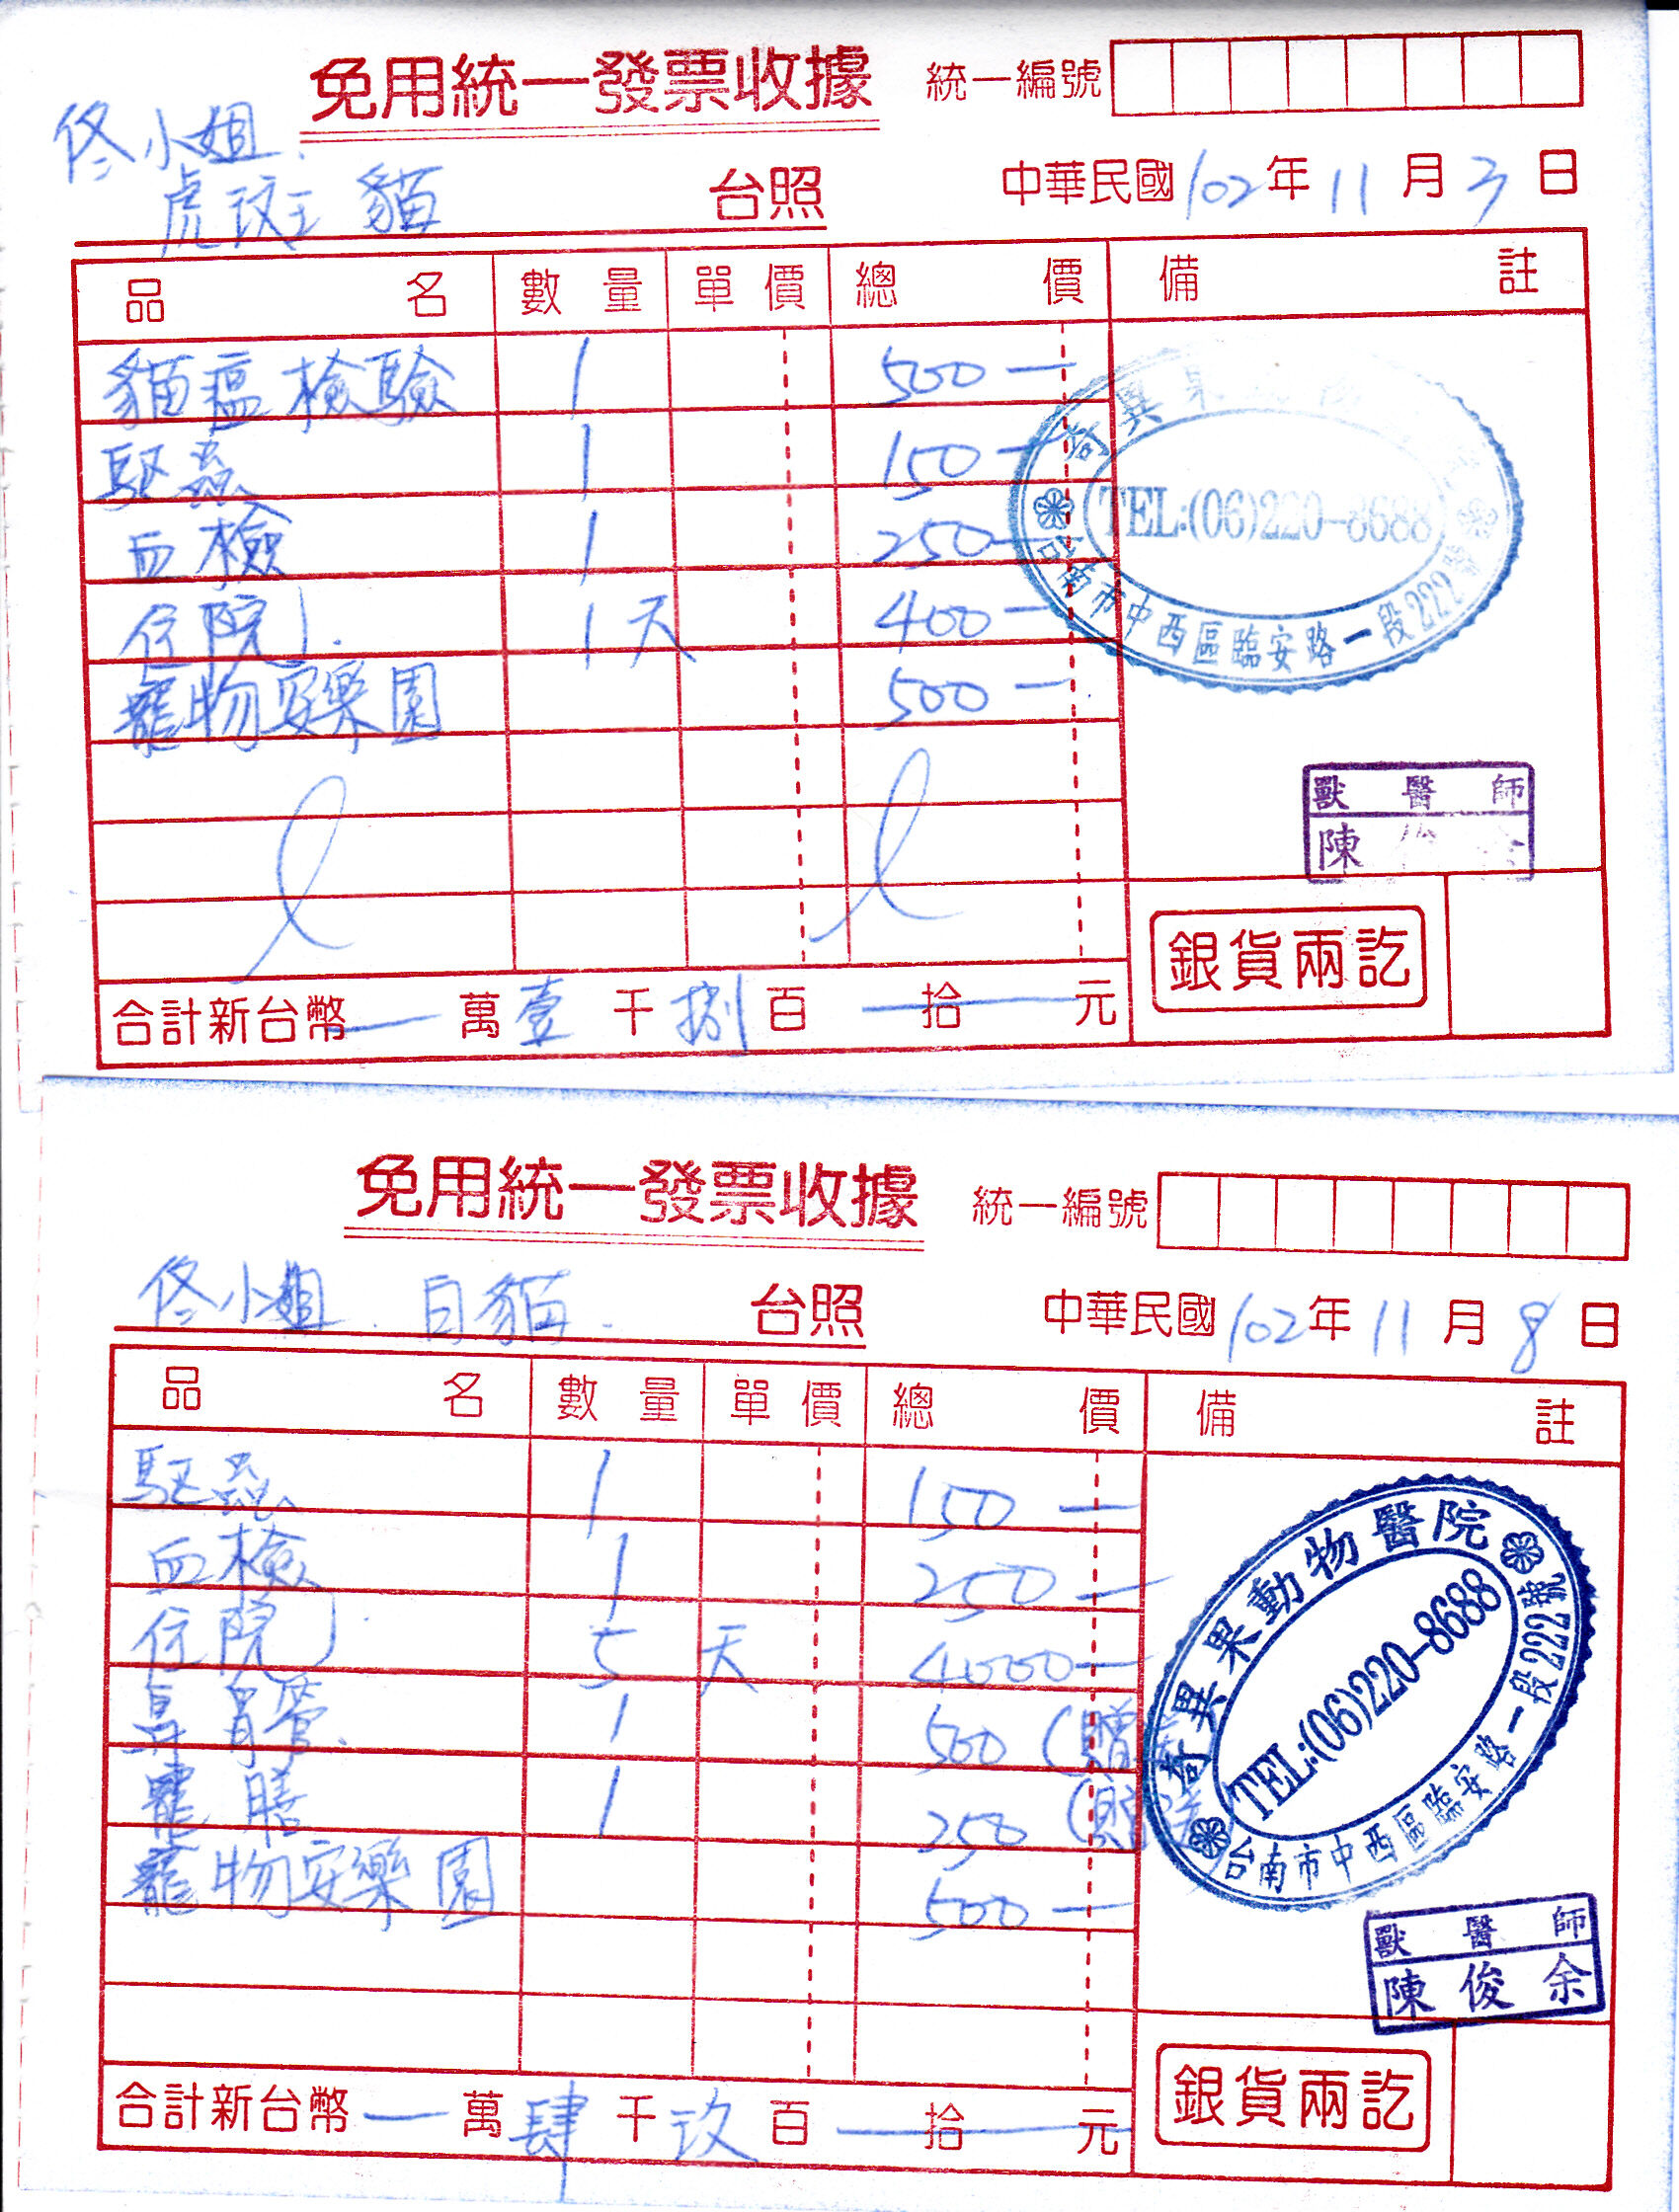 免用統一發票收據 統一編號
佟小姐.
虎斑貓 台照 中華民國102年11月3日
品名 數量 單價 總價 備註
貓瘟檢驗 1 500—
驅蟲 1 150—
血檢 1 250—
住院 1天 400—
寵物安樂園 500—
奇異果
TEL:(06)220-8688
台南市中西區臨安路一段222號
獸醫師
陳
銀貨兩訖
合計新台幣—萬壹千捌百—拾—元
免用統一發票收據 統一編號
佟小姐. 白貓. 台照 中華民國102年11月8日
品名 數量 單價 總價 備註
驅蟲 1 150—
血檢 1 250—
住院 5天 4000—
鼻胃管. 1 500 (贈
膳 1 250 (贈送
寵物安樂園 500—
奇異果動物醫院
TEL:(06)220-8688
台南市中西區臨安路一段222號
獸醫師
陳俊余
銀貨兩訖
合計新台幣—萬肆千玖百—拾—元